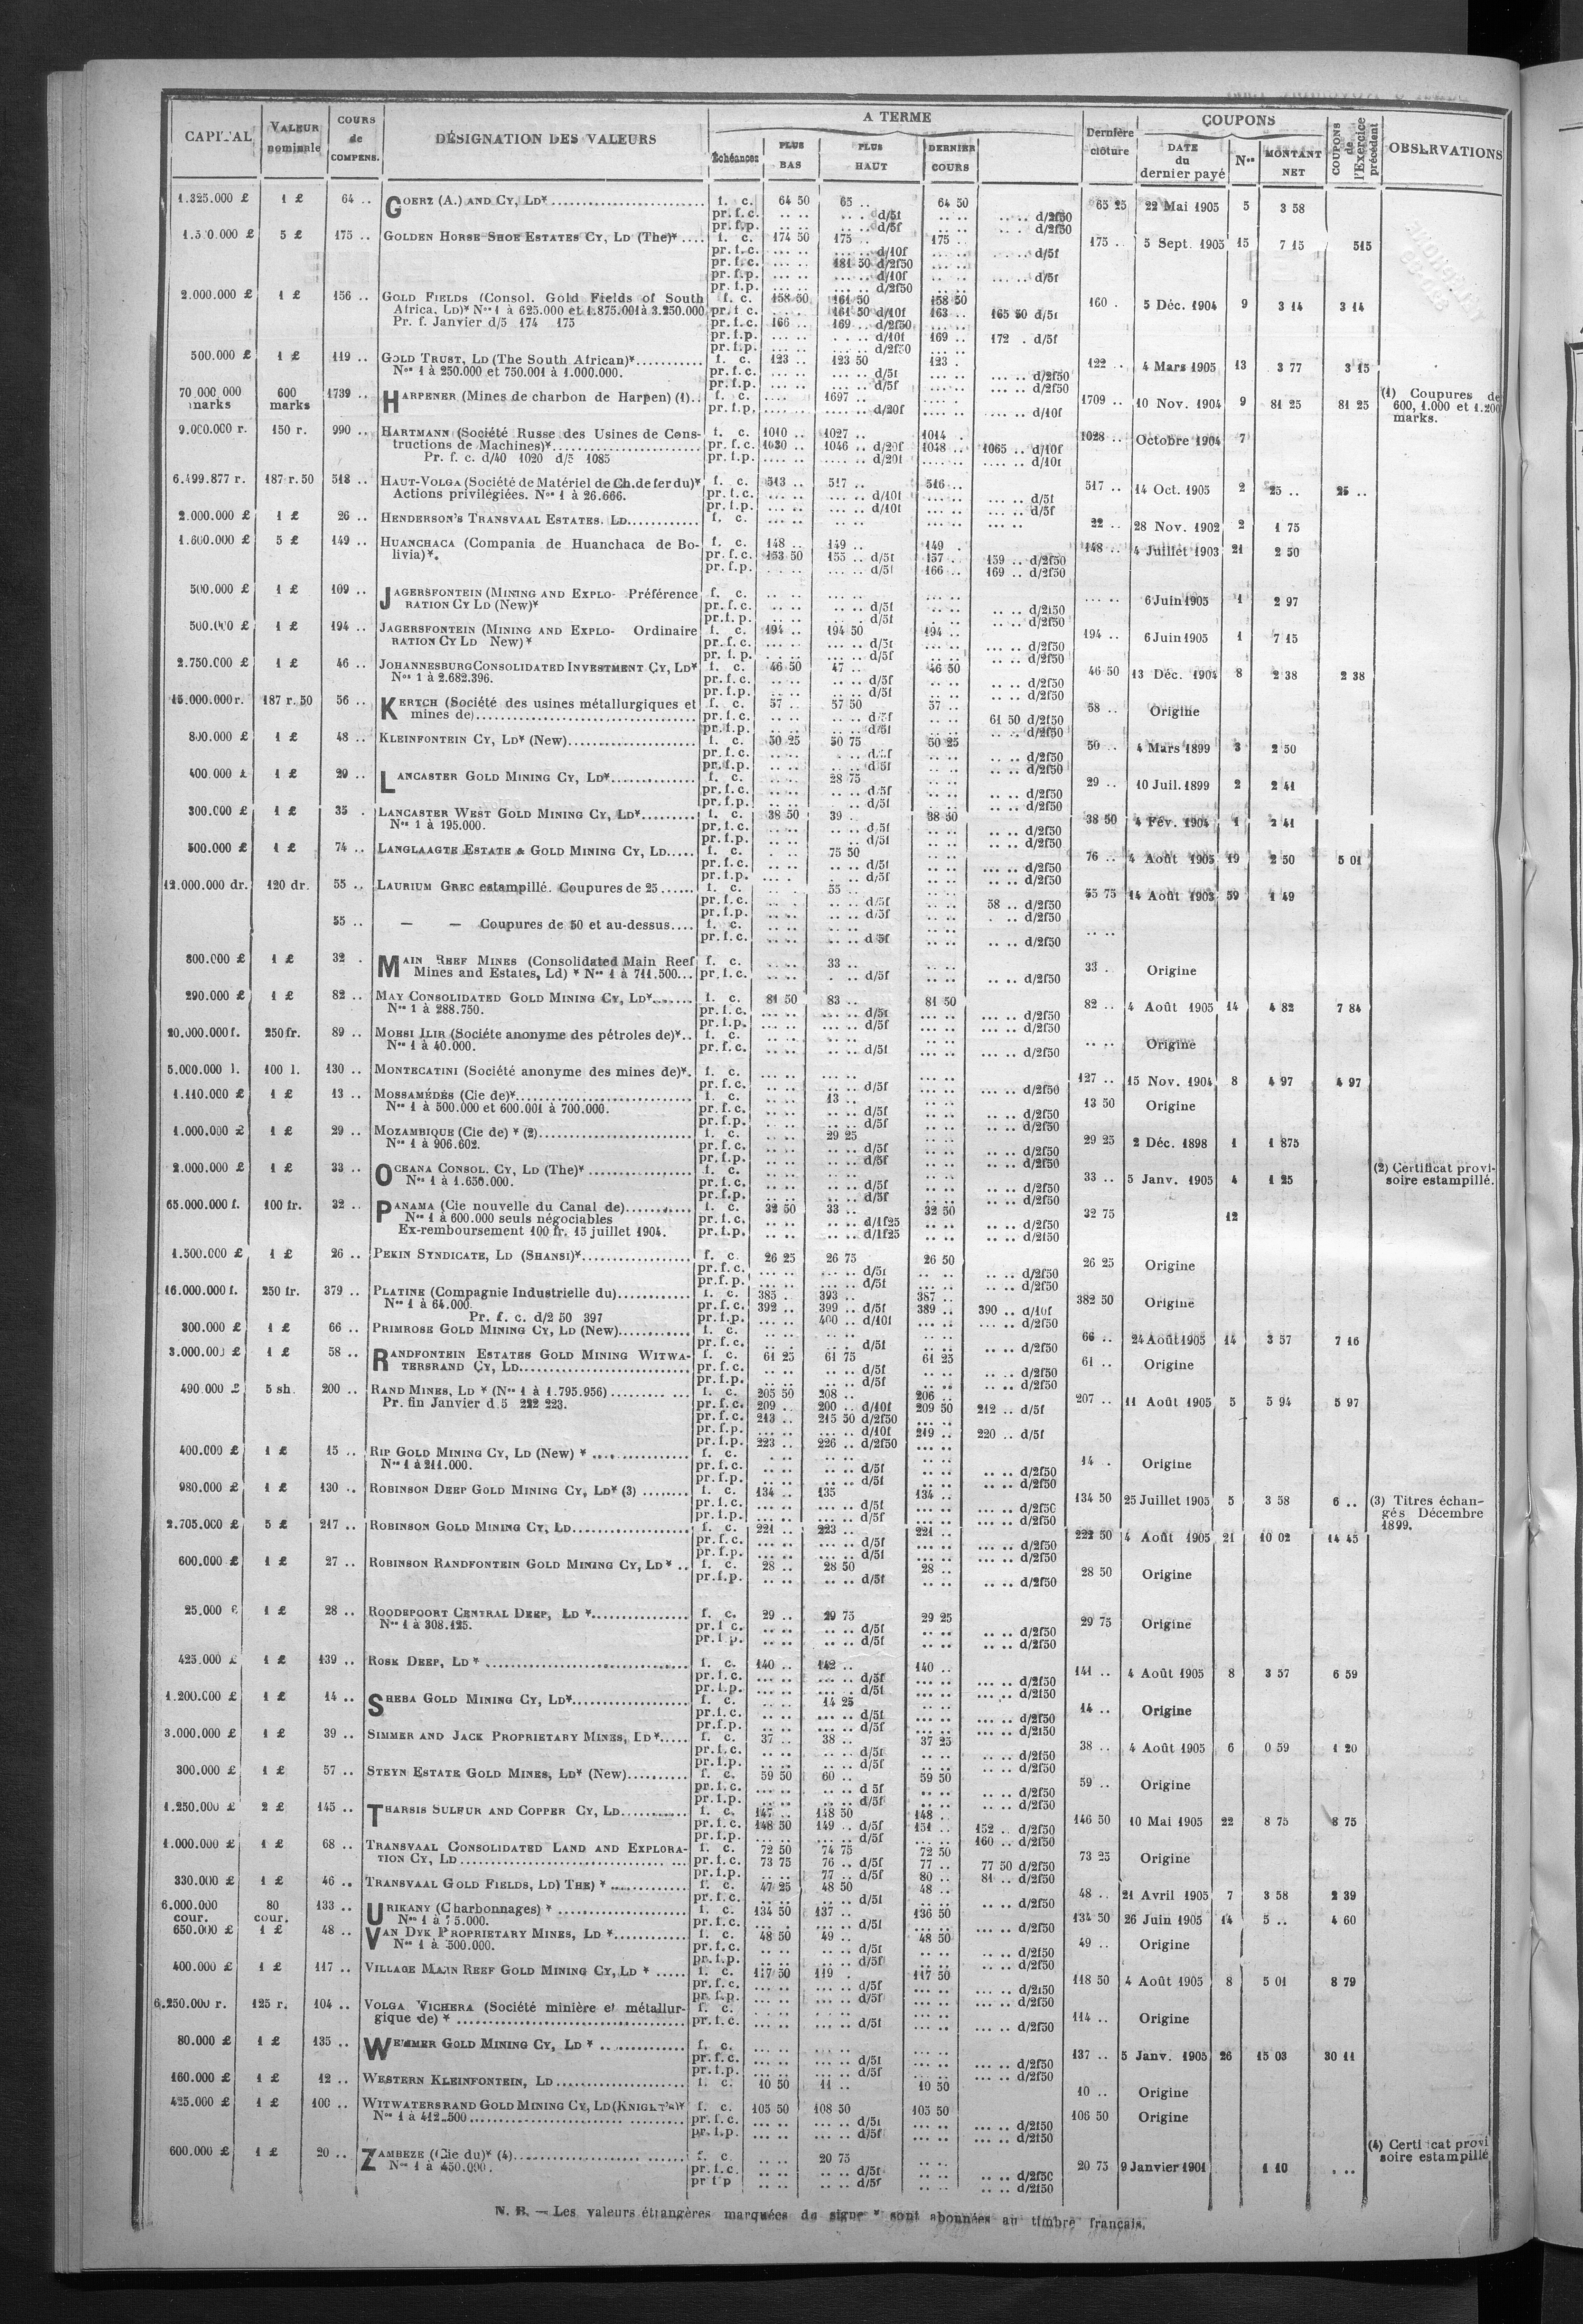 CAPITAL VALEUR nominale COURS de COMPENS. DÉSIGNATION DES VALEURS A TERME Échéances PLUS BAS PLUS HAUT DERNIER COURS Dernière clôture COUPONS DATE du dernier payé Nos MONTANT NET COUPONS de l'Exercice précédent OBSERVATIONS
1.325.000 £ 1 £ 64 .. GOERZ (A.) AND CY, LD* f. c. 64 50 65 .. 64 50 65 25 22 Mai 1905 5 3 58
pr. f. c. .. .. .. .. d/5f .. .. .. .. d/2f50
pr. f.p. .. .. .. .. d/5f .. .. .. .. d/2f50
5 £ 175 .. GOLDEN HORSE SHOE ESTATES CY, LD (The)* .... f. c. 174 50 175 .. 175 .. 175 . 5 Sept. 1905 15 7 15 515
pr. f.c. .... .. .... .. d/10f .... .. .... .. d/5f
pr. f.c. .... .. 181 50 d/2f50
pr. f.p. .... .. .... .. d/10f .... .. .... .. d/5f
pr. f.p. .... .. .... .. d/2f50
2.000.000 £ 1 £ 156 .. GOLD FIELDS (Consol. Gold Fields of South f. c. 158 50 161 50 158 50 160 . 5 Déc. 1904 9 3 14 3 14
Africa. LD)* Nos 1 à 625.000 et 1.875.001 à 3.250.000 pr. f c. .... . 161 50 d/10f 163 .. 165 50 d/5f
Pr. f. Janvier d/5 174 175 pr. f.c. 166 .. 169 .. d/2f50
pr. f.p. .... .. .... d/10f 169 .. 172 . d/5f
pr. f.p. .... .. .... .. d/2f50
500.000 £ 1 £ 119 .. GOLD TRUST, LD (The South African)* f. c. 123 .. 123 50 123 . 122 .. 4 Mars 1905 13 3 77 3 15
Nos 1 à 250.000 et 750.001 à 1.000.000. pr. f.c. .... .. .... .. d/5f .... .. .... .. d/2f50
pr. f.p. .... .. .... .. d/5f .... .. .... .. d/2f50
70.000.000 marks 600 marks 1739 .. HARPENER (Mines de charbon de Harpen) (1).. f. c. .... 1697 .. 1709 .. 10 Nov. 1904 9 81 25 81 25 (1) Coupures de
pr. f.p. .... .. .... .. d/20f .... .. .... .. d/10f 600, 1.000 et 1.200 marks.
9.000.000 r. 150 r. 990 .. HARTMANN (Société Russe des Usines de Cons- f. c. 1010 .. 1027 .. 1014 . 1028 .. Octobre 1904 7
tructions de Machines)* pr. f.c. 1030 .. 1046 .. d/20f 1048 .. 1065 .. d/10f
Pr. f. c. d/40 1020 d/5 1085 pr. f.p. .... .. .... .. d/20f .... .. .... .. d/10f
6.499.877 r. 187 r. 50 518 .. HAUT-VOLGA (Société de Matériel de Ch. de fer du)* f. c. 513 .. 517 .. 516 .. 517 .. 14 Oct. 1905 2 25 .. 25 ..
Actions privilégiées. Nos 1 à 26.666. pr. f.c. .... .. .... .. d/10f .... .. .... .. d/5f
pr. f.p. .... .. .... .. d/10f .... .. .... .. d/5f
2.000.000 £ 1 £ 26 .. HENDERSON'S TRANSVAAL ESTATES. LD f. c. 22 .. 28 Nov. 1902 2 1 75
1.600.000 £ 5 £ 149 .. HUANCHACA (Compania de Huanchaca de Bo- f. c. 148 .. 149 .. 149 . 148 .. 4 Juillet 1903 21 2 50
livia)*. pr. f.c. 153 50 155 .. d/5f 157 .. 159 .. d/2f50
pr. f.p. .... .. .... .. d/5f 166 .. 169 .. d/2f50
500.000 £ 1 £ 109 .. JAGERSFONTEIN (MINING AND EXPLO- Préférence f. c. 6 Juin 1905 1 2 97
RATION CY LD (New)* pr. f.c. .. .. .... .. d/5f .. .. .. .. d/2f50
pr. f.p. .. .. .... .. d/5f .. .. .. .. d/2f50
500.000 £ 1 £ 194 .. JAGERSFONTEIN (MINING AND EXPLO- Ordinaire f. c. 194 .. 194 50 194 .. 194 .. 6 Juin 1905 1 7 15
RATION CY LD New)* pr. f.c. .... .. .... .. d/5f .. .. .. .. d/2f50
pr. f.p. .... .. .... .. d/5f .. .. .. .. d/2f50
2.750.000 £ 1 £ 46 .. JOHANNESBURG CONSOLIDATED INVESTMENT CY, LD* f. c. 46 50 47 .. 46 50 46 50 13 Déc. 1904 8 2 38 2 38
Nos 1 à 2.682.396. pr. f.c. .. .. .. .. d/5f .. .. .. .. d/2f50
pr. f.p. .. .. .. .. d/5f .. .. .. .. d/2f50
15.000.000 r. 187 r. 50 56 .. KERTCH (Société des usines métallurgiques et f. c. 57 .. 57 50 57 .. 58 .. Origine
mines de) pr. f.c. .. .. .. .. d/5f .. .. 61 50 d/2f50
pr. f.p. .. .. .. .. d/5f .. .. .. .. d/2f50
800.000 £ 1 £ 48 .. KLEINFONTEIN CY, LD* (New) f. c. 50 25 50 75 50 25 50 .. 4 Mars 1899 3 2 50
pr. f.c. .. .. .. .. d/5f .. .. .. .. d/2f50
pr. f.p. .. .. .. .. d/5f .. .. .. .. d/2f50
400.000 £ 1 £ 29 .. LANCASTER GOLD MINING CY, LD* f. c. 28 75 29 .. 10 Juil. 1899 2 2 41
pr. f.c. .. .. .. .. d/5f .. .. .. .. d/2f50
pr. f.p. .. .. .. .. d/5f .. .. .. .. d/2f50
300.000 £ 1 £ 35 . LANCASTER WEST GOLD MINING CY, LD* f. c. 38 50 39 .. 38 50 38 50 4 Fév. 1904 1 2 41
Nos 1 à 195.000. pr. f.c. .. .. .. .. d/5f .. .. .. .. d/2f50
pr. f.p. .. .. .. .. d/5f .. .. .. .. d/2f50
500.000 £ 1 £ 74 .. LANGLAAGTE ESTATE & GOLD MINING CY, LD f. c. 75 50 76 .. 4 Août 1905 19 2 50 5 01
pr. f.c. .. .. .. .. d/5f .. .. .. .. d/2f50
pr. f.p. .. .. .. .. d/5f .. .. .. .. d/2f50
12.000.000 dr. 120 dr. 55 .. LAURIUM GREC estampillé. Coupures de 25 f. c. 55 .. 55 75 14 Août 1903 59 1 49
pr. f.c. .. .. .. .. d/5f 58 .. d/2f50
pr. f.p. .. .. .. .. d/5f .. .. d/2f50
55 .. — — Coupures de 50 et au-dessus f. c.
pr. f.c. .. .. .. .. d/5f .. .. .. .. d/2f50
800.000 £ 1 £ 32 . MAIN REEF MINES (Consolidated Main Reef f. c. 33 .. 33 . Origine
Mines and Estates, Ld) * Nos 1 à 711.500 pr. f.c. .. .. .. .. d/5f .. .. .. .. d/2f50
290.000 £ 1 £ 82 .. MAY CONSOLIDATED GOLD MINING CY, LD* f. c. 81 50 83 .. 81 50 82 .. 4 Août 1905 14 4 82 7 84
Nos 1 à 288.750. pr. f.c. .... .. .... .. d/5f .... .. .... .. d/2f50
pr. f.p. .... .. .... .. d/5f .... .. .... .. d/2f50
20.000.000 f. 250 fr. 89 .. MORSI ILIR (Sociéte anonyme des pétroles de)*.. f. c. Origine
Nos 1 à 40.000. pr. f.c. .. .. .. .. d/5f .. .. .. .. d/2f50
5.000.000 l. 100 l. 130 .. MONTECATINI (Société anonyme des mines de)*. f. c. 127 .. 15 Nov. 1904 8 4 97 4 97
pr. f.c. .... .. .... .. d/5f .... .. .... .. d/2f50
1.110.000 £ 1 £ 13 .. MOSSAMÉDÈS (Cie de)* f. c. 13 .. 13 50 Origine
Nos 1 à 500.000 et 600.001 à 700.000. pr. f.c. .. .. .. .. d/5f .. .. .. .. d/2f50
pr. f.p. .. .. .. .. d/5f .. .. .. .. d/2f50
1.000.000 £ 1 £ 29 .. MOZAMBIQUE (Cie de) * (2) f. c. 29 25 29 25 2 Déc. 1898 1 1 875
Nos 1 à 906.602. pr. f.c. .. .. .. .. d/5f .. .. .. .. d/2f50
pr. f.p. .. .. .. .. d/5f .. .. .. .. d/2f50
2.000.000 £ 1 £ 33 .. OCEANA CONSOL. CY, LD (The)* f. c. 33 .. 5 Janv. 1905 4 1 25 (2) Certificat provi-
Nos 1 à 1.650.000. pr. f.c. .. .. .. .. d/5f .. .. .. .. d/2f50 soire estampillé.
pr. f.p. .. .. .. .. d/5f .. .. .. .. d/2f50
65.000.000 f. 100 fr. 32 .. PANAMA (Cie nouvelle du Canal de) f. c. 32 50 33 .. 32 50 32 75 12
Nos 1 à 600.000 seuls négociables pr. f.c. .. .. .. .. d/1f25 .. .. .. .. d/2f50
Ex-remboursement 100 fr. 15 juillet 1904. pr. f.p. .. .. .. .. d/1f25 .. .. .. .. d/2f50
1.500.000 £ 1 £ 26 .. PEKIN SYNDICATE, LD (SHANSI)* f. c. 26 25 26 75 26 50 26 25 Origine
pr. f.c. .... .. .... .. d/5f .. .. .. .. d/2f50
pr. f.p. .... .. .... .. d/5f .. .. .. .. d/2f50
16.000.000 f. 250 fr. 379 .. PLATINE (Compagnie Industrielle du) f. c. 385 . 393 .. 387 .. 382 50 Origine
Nos 1 à 64.000. pr. f.c. 392 .. 399 .. d/5f 389 .. 390 .. d/10f
Pr. f. c. d/2 50 397 pr. f.p. .... .. 400 .. d/10f .... .. .... .. d/2f50
300.000 £ 1 £ 66 .. PRIMROSE GOLD MINING CY, LD (New) f. c. 66 .. 24 Août 1905 14 3 57 7 16
pr. f.c. .. .. .. .. d/5f .. .. .. .. d/2f50
3.000.000 £ 1 £ 58 .. RANDFONTEIN ESTATES GOLD MINING WITWA- f. c. 61 25 61 75 61 25 61 .. Origine
TERSRAND CY, LD pr. f.c. .. .. .. .. d/5f .. .. .. .. d/2f50
pr. f.p. .. .. .. .. d/5f .. .. .. .. d/2f50
490.000 £ 5 sh. 200 .. RAND MINES, LD * (Nos 1 à 1.795.956) f. c. 205 50 208 .. 206 .. 207 .. 11 Août 1905 5 5 94 5 97
Pr. fin Janvier d.5 222 223. pr. f.c. 209 .. 200 .. d/10f 209 50 212 .. d/5f
pr. f.c. 213 .. 215 50 d/2f50
pr. f.p. .... .. .... .. d/10f 219 .. 220 .. d/5f
pr. f.p. 223 .. 226 .. d/2f50
400.000 £ 1 £ 15 .. RIP GOLD MINING CY, LD (New) * f. c. 14 . Origine
Nos 1 à 211.000. pr. f.c. .. .. .. .. d/5f .. .. .. .. d/2f50
pr. f.p. .. .. .. .. d/5f .. .. .. .. d/2f50
980.000 £ 1 £ 130 .. ROBINSON DEEP GOLD MINING CY, LD* (3) f. c. 134 .. 135 134 .. 134 50 25 Juillet 1905 5 3 58 6 .. (3) Titres échan-
pr. f.c. .... .. .... .. d/5f .... .. .... .. d/2f50 gés Décembre
pr. f.p. .... .. .... .. d/5f .... .. .... .. d/2f50 1899.
2.705.000 £ 5 £ 217 .. ROBINSON GOLD MINING CY, LD f. c. 221 .. 223 .. 221 .. 222 50 4 Août 1905 21 10 02 14 45
pr. f.c. .... .. .... .. d/5f .... .. .... .. d/2f50
pr. f.p. .... .. .... .. d/5f .... .. .... .. d/2f50
600.000 £ 1 £ 27 .. ROBINSON RANDFONTEIN GOLD MINING CY, LD * .. f. c. 28 .. 28 50 28 .. 28 50 Origine
pr. f.p. .. .. .. .. d/5f .. .. .. .. d/2f50
25.000 £ 1 £ 28 .. ROODEPOORT CENTRAL DEEP, LD * f. c. 29 .. 29 75 29 25 29 75 Origine
Nos 1 à 308.125. pr. f c. .. .. .. .. d/5f .. .. .. .. d/2f50
pr. f p. .. .. .. .. d/5f .. .. .. .. d/2f50
425.000 £ 1 £ 139 .. ROSE DEEP, LD * f. c. 140 .. 142 .. 140 .. 141 .. 4 Août 1905 8 3 57 6 59
pr. f.c. .... .. .... .. d/5f .... .. .... .. d/2f50
pr. f.p. .... .. .... .. d/5f .... .. .... .. d/2f50
1.200.000 £ 1 £ 14 .. SHEBA GOLD MINING CY, LD* f. c. 14 25 14 .. Origine
pr. f.c. .... .. .... .. d/5f .... .. .... .. d/2f50
pr. f.p. .... .. .... .. d/5f .... .. .... .. d/2f50
3.000.000 £ 1 £ 39 .. SIMMER AND JACK PROPRIETARY MINES, LD* f. c. 37 .. 38 .. 37 25 38 .. 4 Août 1905 6 0 59 1 20
pr. f.c. .. .. .. .. d/5f .. .. .. .. d/2f50
pr. f.p. .. .. .. .. d/5f .. .. .. .. d/2f50
300.000 £ 1 £ 57 .. STEYN ESTATE GOLD MINES, LD* (New) f. c. 59 50 60 .. 59 50 59 .. Origine
pr. f.c. .... .. .... .. d 5f .. .. .. .. d/2f50
pr. f.p. .... .. .... .. d/5f .. .. .. .. d/2f50
1.250.000 £ 2 £ 145 .. THARSIS SULFUR AND COPPER CY, LD f. c. 147 .. 148 50 148 .. 146 50 10 Mai 1905 22 8 75 8 75
pr. f.c. 148 50 149 .. d/5f 151 .. 152 .. d/2f50
pr. f.p. .... .. .... .. d/5f .... .. 160 .. d/2f50
1.000.000 £ 1 £ 68 .. TRANSVAAL CONSOLIDATED LAND AND EXPLORA- f. c. 72 50 74 75 72 50 73 25 Origine
TION CY, LD pr. f.c. 73 75 76 .. d/5f 77 .. 77 50 d/2f50
pr. f.p. .. .. 77 .. d/5f 80 .. 81 .. d/2f50
330.000 £ 1 £ 46 .. TRANSVAAL GOLD FIELDS, LD) THE) * f. c. 47 25 48 50 48 .. 48 .. 21 Avril 1905 7 3 58 2 39
pr. f.c. .. .. .. .. d/5f .. .. .. .. d/2f50
6.000.000 cour. 80 cour. 133 .. URIKANY (Charbonnages) * f. c. 134 50 137 .. 136 50 134 50 26 Juin 1905 14 5 .. 4 60
Nos 1 à 75.000. pr. f.c. .... .. .... .. d/5f .... .. .... .. d/2f50
650.000 £ 1 £ 48 .. VAN DYK PROPRIETARY MINES, LD * f. c. 48 50 49 .. 48 50 49 .. Origine
Nos 1 à 500.000. pr. f.c. .. .. .. .. d/5f .. .. .. .. d/2f50
pr. f.p. .. .. .. .. d/5f .. .. .. .. d/2f50
400.000 £ 1 £ 117 .. VILLAGE MAIN REEF GOLD MINING CY, LD * f. c. 117 50 119 . 117 50 118 50 4 Août 1905 8 5 01 8 79
pr. f.c. .... .. .... .. d/5f .... .. .... .. d/2f50
pr. f.p. .... .. .... .. d/5f .... .. .... .. d/2f50
6.250.000 r. 125 r. 104 .. VOLGA VICHERA (Société minière et métallur- f. c. 114 .. Origine
gique de) * pr. f.c. .... .. .... .. d/5f .... .. .... .. d/2f50
80.000 £ 1 £ 135 .. WEMMER GOLD MINING CY, LD * f. c. 137 .. 5 Janv. 1905 26 15 03 30 11
pr. f.c. .... .. .... .. d/5f .... .. .... .. d/2f50
pr. f.p. .... .. .... .. d/5f .... .. .... .. d/2f50
160.000 £ 1 £ 12 .. WESTERN KLEINFONTEIN, LD f. c. 10 50 11 .. 10 50 10 .. Origine
425.000 £ 1 £ 100 .. WITWATERSRAND GOLD MINING CY, LD (KNIGHT'S)* f. c. 105 50 108 50 105 50 106 50 Origine
Nos 1 à 412.500 pr. f.c. .... .. .... .. d/5f .... .. .... .. d/2f50
pr. f.p. .... .. .... .. d/5f .... .. .... .. d/2f50
600.000 £ 1 £ 20 .. ZAMBEZE (Cie du)* (4) f. c. 20 75 20 75 9 Janvier 1901 1 10 . .. (4) Certificat provi
Nos 1 à 450.000. pr. f.c. .. .. .. .. d/5f .. .. .. .. d/2f50 soire estampillé
pr f p .. .. .. .. d/5f .. .. .. .. d/2f50
N. B. — Les valeurs étrangères marquées du signe * sont abonnées au timbre français.